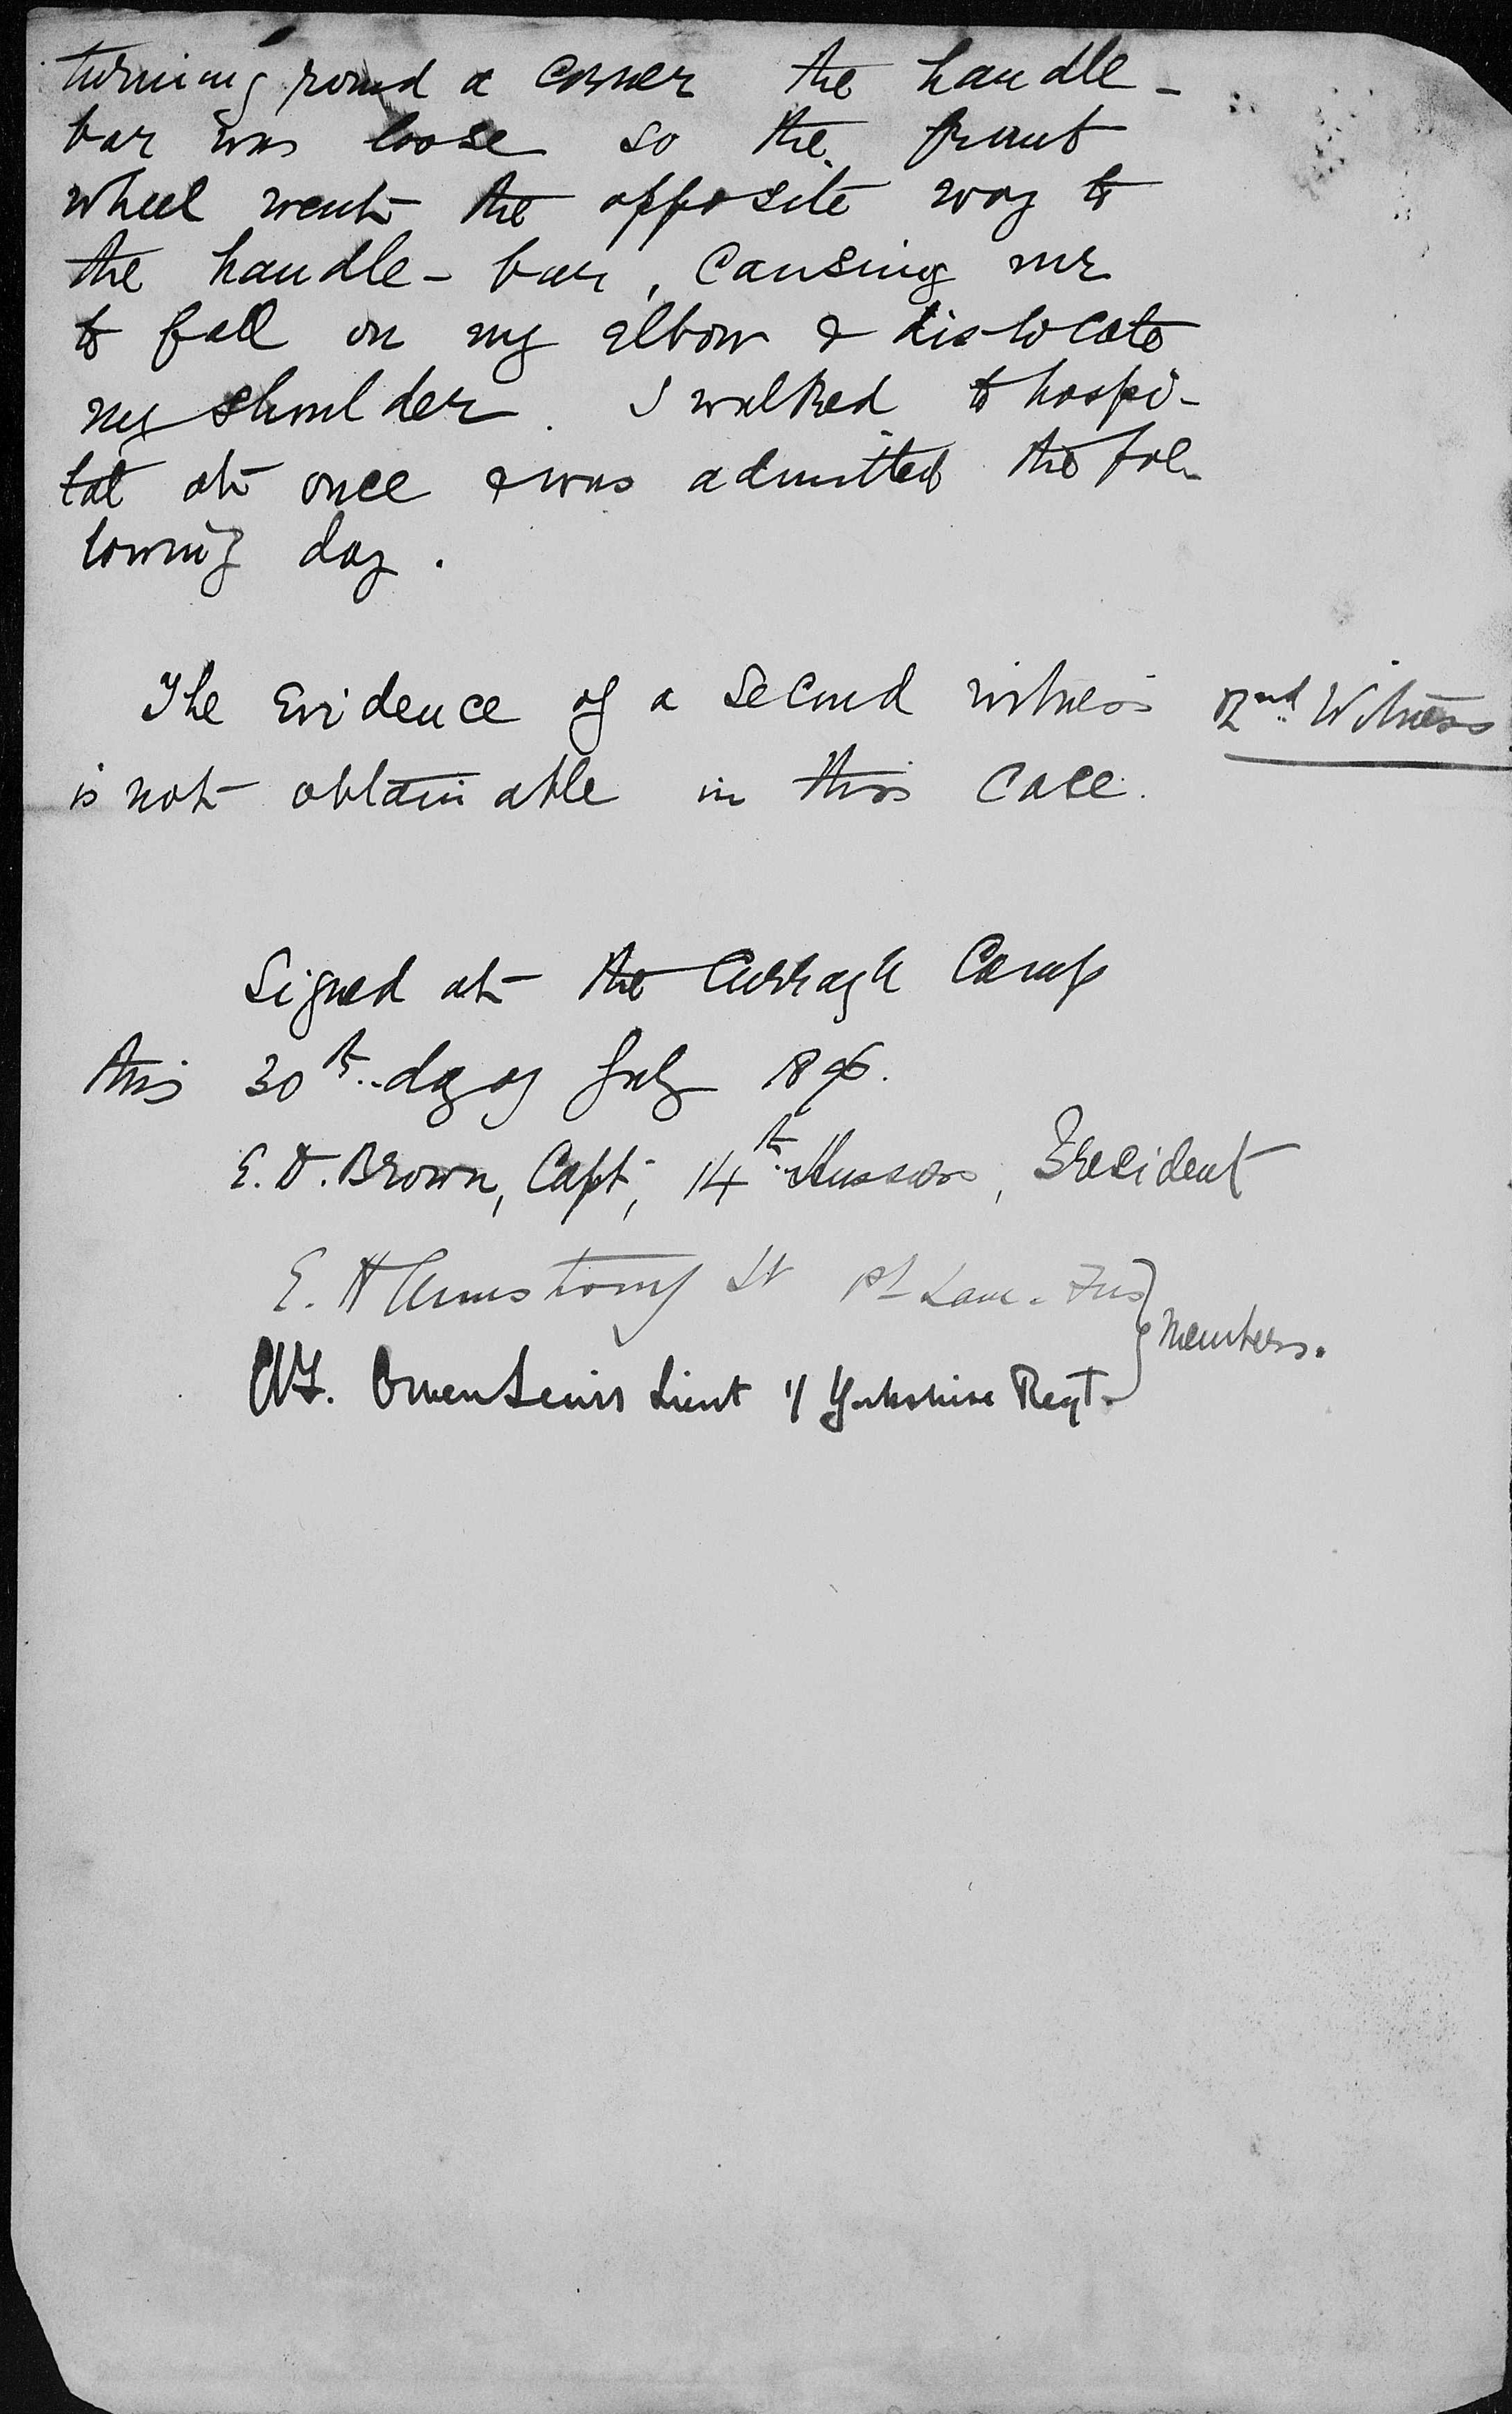 turning round a corner the handle-
bar was loose so the front
wheel went the opposite way to
the handle-bar, causing me
to fall on my elbow & dislocate
my shoulder. I walked to hospi-
tal at once & was admitted the fol-
lowing day.
The Evidence of a Second witness
2nd Witness
is not obtainable in this case.
Signed at the Curragh Camp
this 30th day of July 1896.
E. D. Brown, Capt, 14th Hussars, President
E. H Armstrong Lt 1st Lan. Fus
members.
Owen Lewis Lieut 1/ Yorkshire Regt.